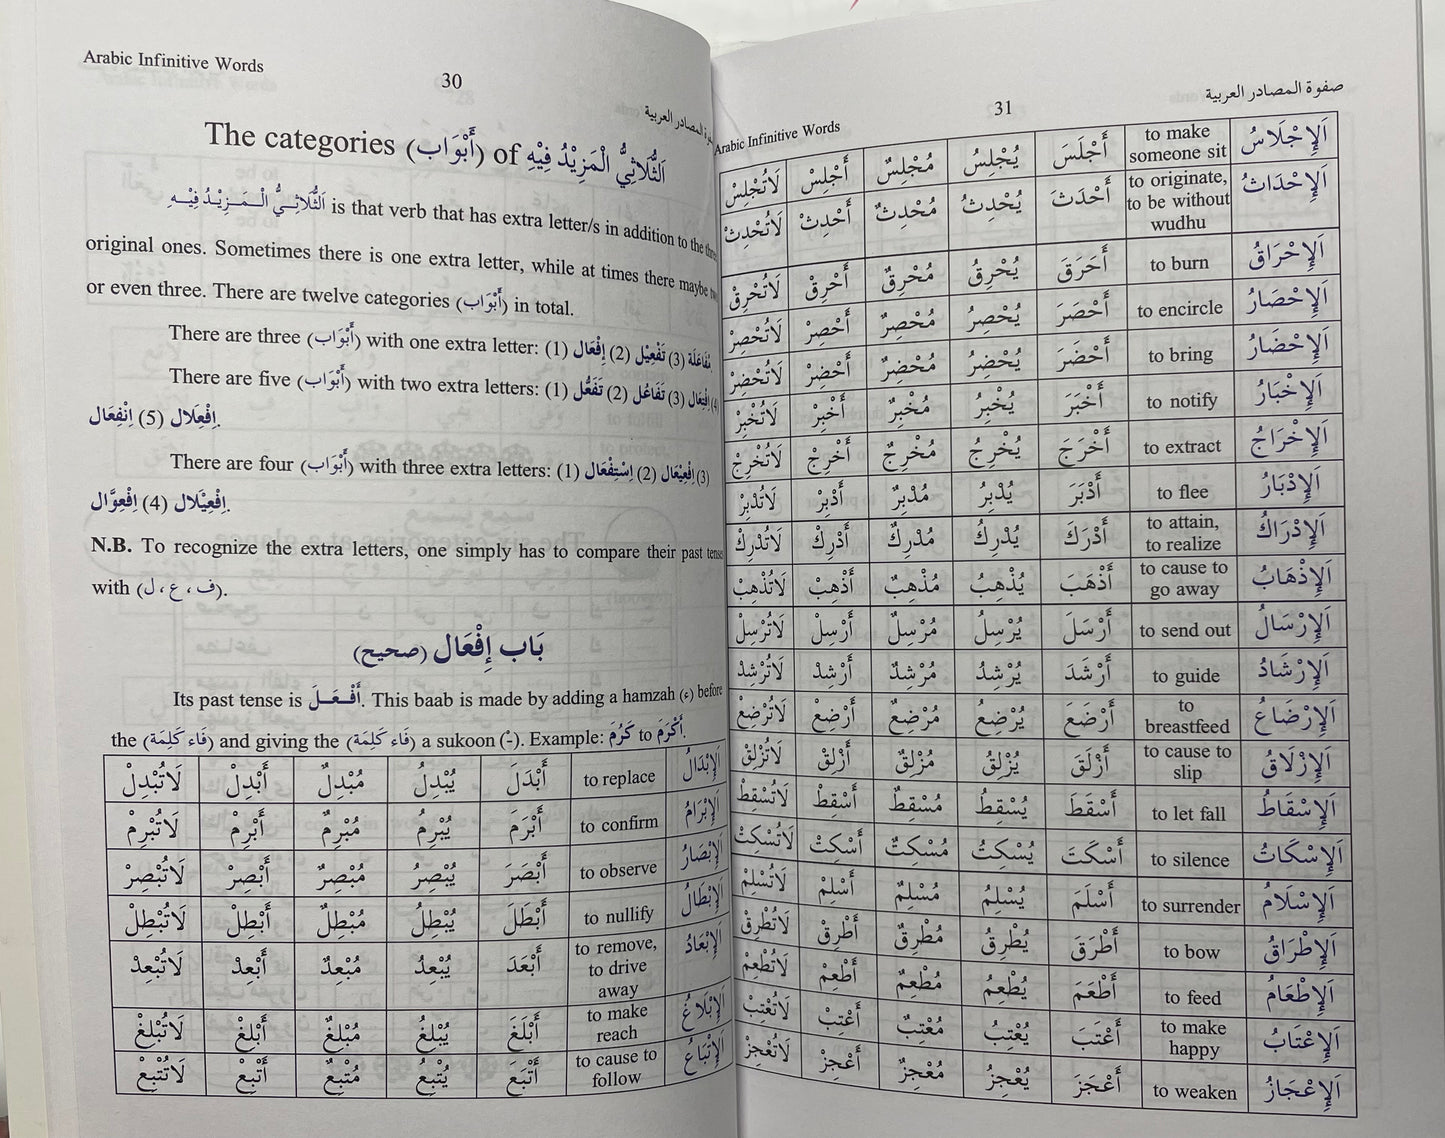 Arabic Infinitive Words
30
صفوة المصادر العربية
The categories (أَبْوَاب) of اَلثُّلَاثِيُّ الْمَزِيْدُ فِيْهِ
اَلثُّلَاثِـيُّ الْـمَـزِيْـدُ فِيْـهِ is that verb that has extra letter/s in addition to the three
original ones. Sometimes there is one extra letter, while at times there maybe
or even three. There are twelve categories (أَبْوَاب) in total.
There are three (أَبْوَاب) with one extra letter: (1) إِفْعَال (2) تَفْعِيْل (3) مُفَاعَلَة
There are five (أَبْوَاب) with two extra letters: (1) تَفَعُّل (2) تَفَاعُل (3) اِفْتِعَال (4)
اِنْفِعَال (5) اِفْعِلَال.
There are four (أَبْوَاب) with three extra letters: (1) اِسْتِفْعَال (2) اِفْعِيْعَال (3)
اِفْعِوَّال (4) اِفْعِيْلَال.
N.B. To recognize the extra letters, one simply has to compare their past tense
with (ف ، ع ، ل).
بَاب إِفْعَال (صحيح)
Its past tense is أَفْـعَـلَ. This baab is made by adding a hamzah (ء) before
the (فَاء كَلِمَة) and giving the (فَاء كَلِمَة) a sukoon (ـْ). Example: كَرُمَ to أَكْرَمَ.
اَلْإِبْدَالُ to replace أَبْدَلَ يُبْدِلُ مُبْدِلٌ أَبْدِلْ لَاتُبْدِلْ
اَلْإِبْرَامُ to confirm أَبْرَمَ يُبْرِمُ مُبْرِمٌ أَبْرِمْ لَاتُبْرِمْ
اَلْإِبْصَارُ to observe أَبْصَرَ يُبْصِرُ مُبْصِرٌ أَبْصِرْ لَاتُبْصِرْ
اَلْإِبْطَالُ to nullify أَبْطَلَ يُبْطِلُ مُبْطِلٌ أَبْطِلْ لَاتُبْطِلْ
اَلْإِبْعَادُ to remove, to drive away أَبْعَدَ يُبْعِدُ مُبْعِدٌ أَبْعِدْ لَاتُبْعِدْ
اَلْإِبْلَاغُ to make reach أَبْلَغَ يُبْلِغُ مُبْلِغٌ أَبْلِغْ لَاتُبْلِغْ
اَلْإِتْبَاعُ to cause to follow أَتْبَعَ يُتْبِعُ مُتْبِعٌ أَتْبِعْ لَاتُتْبِعْ
Arabic Infinitive Words
31
صفوة المصادر العربية
اَلْإِجْلَاسُ to make someone sit أَجْلَسَ يُجْلِسُ مُجْلِسٌ أَجْلِسْ لَاتُجْلِسْ
اَلْإِحْدَاثُ to originate, to be without wudhu أَحْدَثَ يُحْدِثُ مُحْدِثٌ أَحْدِثْ لَاتُحْدِثْ
اَلْإِحْرَاقُ to burn أَحْرَقَ يُحْرِقُ مُحْرِقٌ أَحْرِقْ لَاتُحْرِقْ
اَلْإِحْصَارُ to encircle أَحْصَرَ يُحْصِرُ مُحْصِرٌ أَحْصِرْ لَاتُحْصِرْ
اَلْإِحْضَارُ to bring أَحْضَرَ يُحْضِرُ مُحْضِرٌ أَحْضِرْ لَاتُحْضِرْ
اَلْإِخْبَارُ to notify أَخْبَرَ يُخْبِرُ مُخْبِرٌ أَخْبِرْ لَاتُخْبِرْ
اَلْإِخْرَاجُ to extract أَخْرَجَ يُخْرِجُ مُخْرِجٌ أَخْرِجْ لَاتُخْرِجْ
اَلْإِدْبَارُ to flee أَدْبَرَ يُدْبِرُ مُدْبِرٌ أَدْبِرْ لَاتُدْبِرْ
اَلْإِدْرَاكُ to attain, to realize أَدْرَكَ يُدْرِكُ مُدْرِكٌ أَدْرِكْ لَاتُدْرِكْ
اَلْإِذْهَابُ to cause to go away أَذْهَبَ يُذْهِبُ مُذْهِبٌ أَذْهِبْ لَاتُذْهِبْ
اَلْإِرْسَالُ to send out أَرْسَلَ يُرْسِلُ مُرْسِلٌ أَرْسِلْ لَاتُرْسِلْ
اَلْإِرْشَادُ to guide أَرْشَدَ يُرْشِدُ مُرْشِدٌ أَرْشِدْ لَاتُرْشِدْ
اَلْإِرْضَاعُ to breastfeed أَرْضَعَ يُرْضِعُ مُرْضِعٌ أَرْضِعْ لَاتُرْضِعْ
اَلْإِزْلَاقُ to cause to slip أَزْلَقَ يُزْلِقُ مُزْلِقٌ أَزْلِقْ لَاتُزْلِقْ
اَلْإِسْقَاطُ to let fall أَسْقَطَ يُسْقِطُ مُسْقِطٌ أَسْقِطْ لَاتُسْقِطْ
اَلْإِسْكَاتُ to silence أَسْكَتَ يُسْكِتُ مُسْكِتٌ أَسْكِتْ لَاتُسْكِتْ
اَلْإِسْلَامُ to surrender أَسْلَمَ يُسْلِمُ مُسْلِمٌ أَسْلِمْ لَاتُسْلِمْ
اَلْإِطْرَاقُ to bow أَطْرَقَ يُطْرِقُ مُطْرِقٌ أَطْرِقْ لَاتُطْرِقْ
اَلْإِطْعَامُ to feed أَطْعَمَ يُطْعِمُ مُطْعِمٌ أَطْعِمْ لَاتُطْعِمْ
اَلْإِعْتَابُ to make happy أَعْتَبَ يُعْتِبُ مُعْتِبٌ أَعْتِبْ لَاتُعْتِبْ
اَلْإِعْجَازُ to weaken أَعْجَزَ يُعْجِزُ مُعْجِزٌ أَعْجِزْ لَاتُعْجِزْ